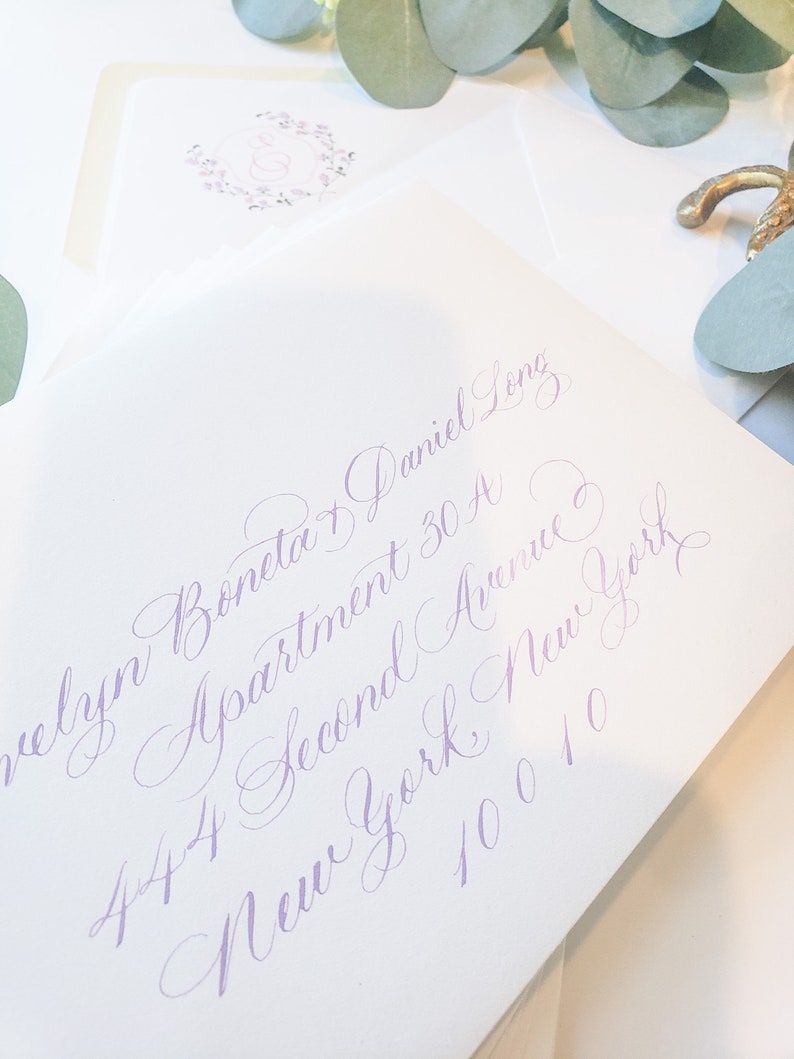 velyn Boneta & Daniel Long
Apartment 30A
444 Second Avenue
New York, New York
10010